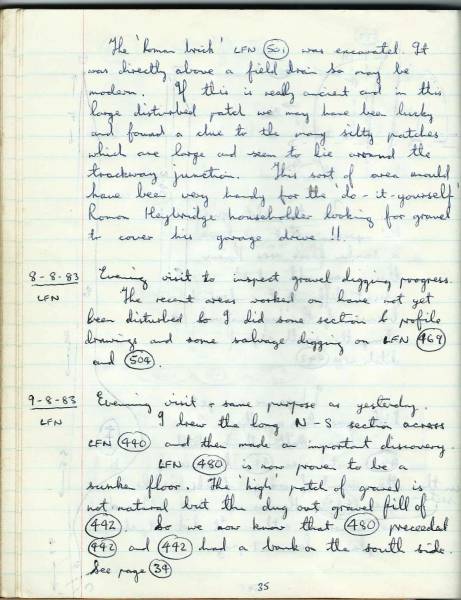 The 'Roman brick' LFN 501 was excavated. It
was directly above a field drain so may be
modern. If this is really ancient and in this
large disturbed patch we may have been lucky
and found a clue to the many silty patches
which are large and seem to lie around the
trackway junction. This sort of area would
have been very handy for the 'do-it-yourself'
Roman Heybridge householder looking for gravel
to cover his garage drive !!.
8-8-83 Evening visit to inspect gravel digging progress.
LFN The recent areas worked on have not yet
been disturbed so I did some section & profile
drawings and some salvage digging on LFN 469
and 504.
9-8-83 Evening visit - same purpose as yesterday.
LFN I drew the long N-S section across
LFN 440 and then made an important discovery.
LFN 480 is now proven to be a
sunken floor. The 'high' patch of gravel is
not natural but the dug out gravel fill of
442. So we now know that 480 preceeded
442 and 442 had a bank on the south side.
See page 34
35